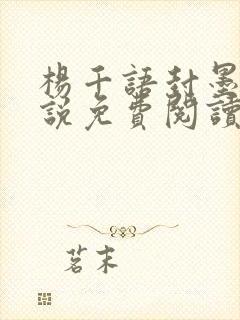 楊千語封墨
說免費閱讀
茗末